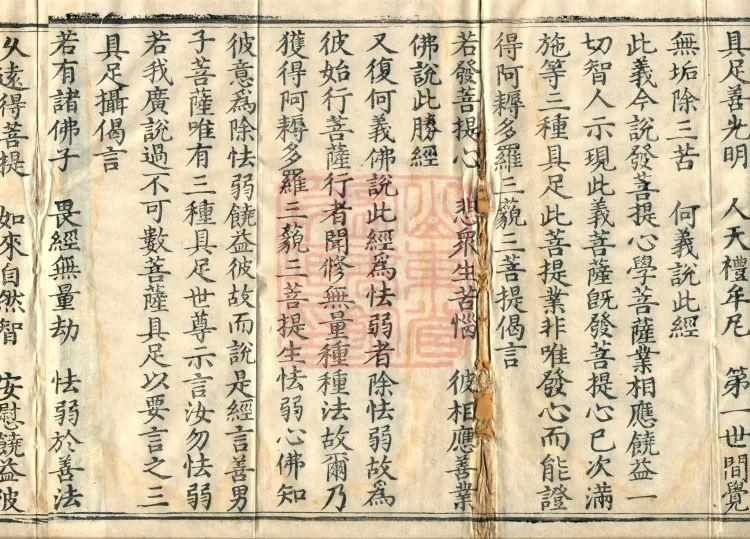 具足善光明　人天禮牟尼　第一世間覺
無垢除三苦　何義說此經
此義今說發菩提心學菩薩業相應饒益一
切智人示現此義菩薩旣發菩提心已次滿
施等三種具足此菩提業非唯發心而能證
得阿耨多羅三藐三菩提偈言
若發菩提心　悲衆生苦惱　彼相應善業
佛說此勝經
又復何義佛說此經爲怯弱者除怯弱故爲
彼始行菩薩行者聞修無量種種法故爾乃
獲得阿耨多羅三藐三菩提生怯弱心佛知
彼意爲除怯弱饒益彼故而說是經言善男
子菩薩唯有三種具足世尊示言汝勿怯弱
若我廣說過不可數菩薩具足以要言之三
具足攝偈言
若有諸佛子　畏經無量劫　怯弱於善法
久遠得菩提　如來自然智　安慰饒益彼